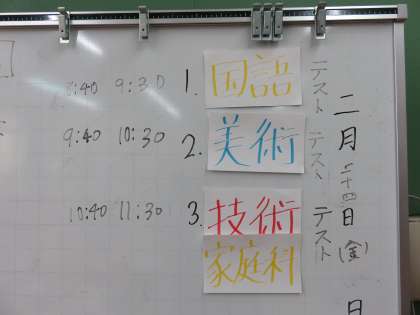 二月二十四日(金)
8:40 9:30 1. 国語 テスト
9:40 10:30 2. 美術 テスト
10:40 11:30 3. 技術 テスト
家庭科
日